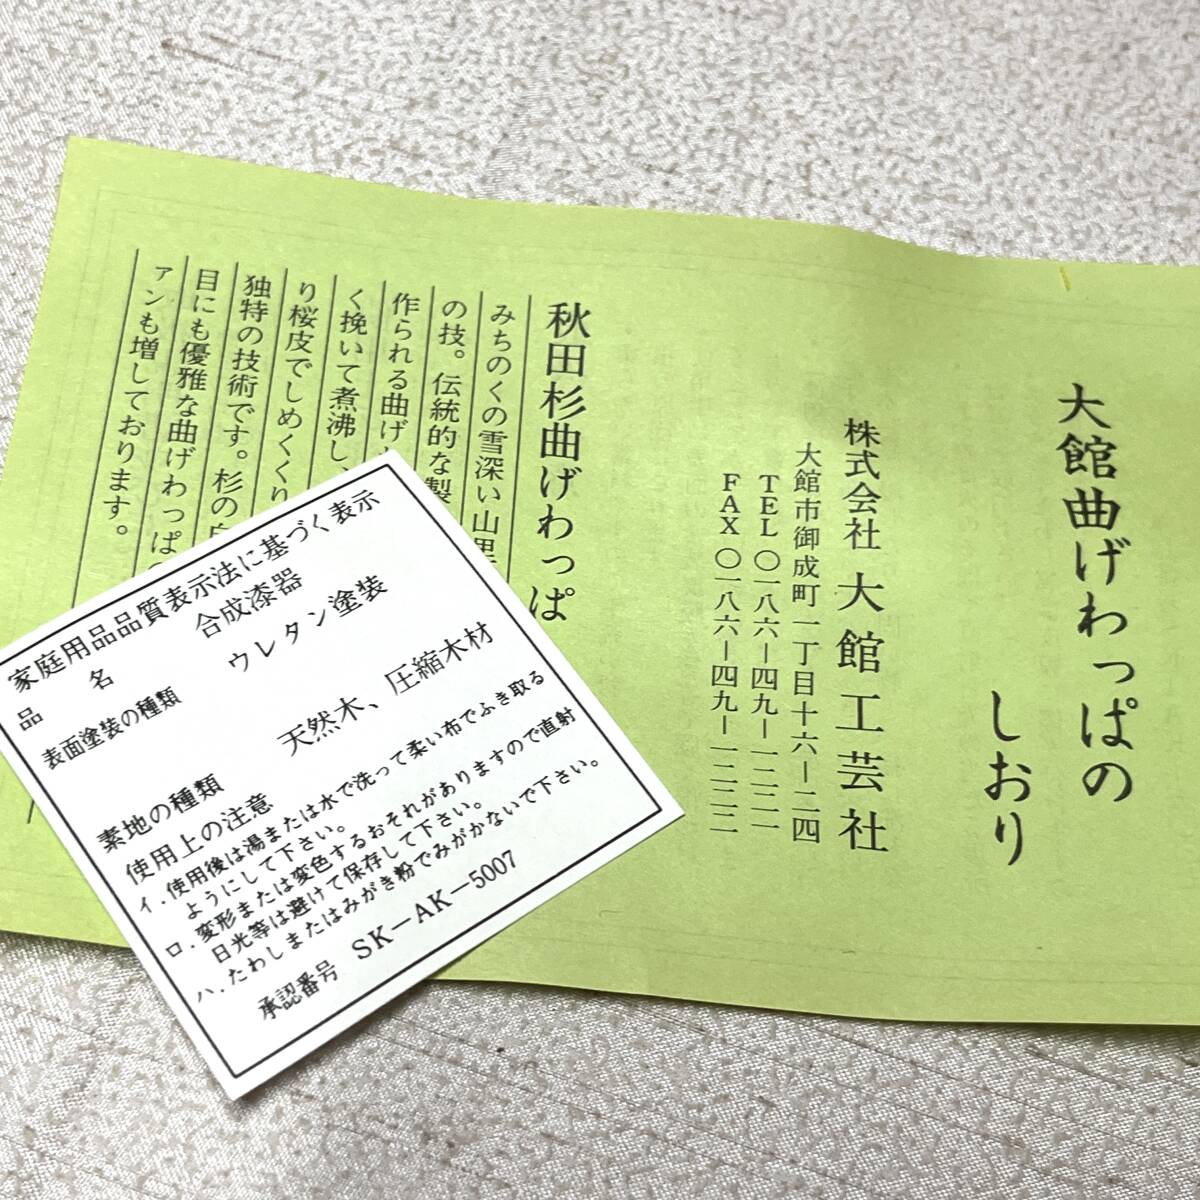 大館曲げわっぱの
しおり
株式会社 大館工芸社
大館市御成町一丁目十六ー二四
TEL〇一八六ー四九ー一二二一
FAX〇一八六ー四九ー一二二二
秋田杉曲げわっぱ
みちのくの雪深い山里
の技。伝統的な製
作られる曲げ
く挽いて煮沸し、
り桜皮でしめくくり
独特の技術です。杉の
目にも優雅な曲げわっぱ
ァンも増しております。
家庭用品品質表示法に基づく表示
品名 合成漆器
表面塗装の種類 ウレタン塗装
素地の種類 天然木、圧縮木材
使用上の注意
イ.使用後は湯または水で洗って柔い布でふき取る
ようにして下さい。
ロ.変形または変色するおそれがありますので直射
日光等は避けて保存して下さい。
ハ.たわしまたはみがき粉でみがかないで下さい。
承認番号 SK－AK－5007